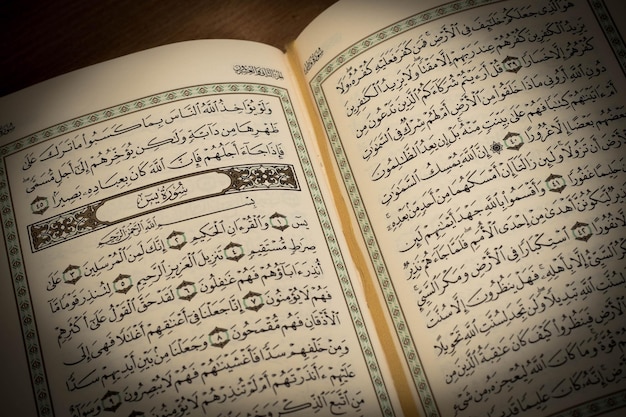 هُوَ الَّذِي جَعَلَكُمْ خَلَائِفَ فِي الْأَرْضِ فَمَن كَفَرَ فَعَلَيْهِ كُفْرُهُ وَلَا
يَزِيدُ الْكَافِرِينَ كُفْرُهُمْ عِندَ رَبِّهِمْ إِلَّا مَقْتًا وَلَا يَزِيدُ الْكَافِرِينَ
كُفْرُهُمْ إِلَّا خَسَارًا ٣٩ قُلْ أَرَأَيْتُمْ شُرَكَاءَكُمُ الَّذِينَ تَدْعُونَ مِن
دُونِ اللَّهِ أَرُونِي مَاذَا خَلَقُوا مِنَ الْأَرْضِ أَمْ لَهُمْ شِرْكٌ فِي السَّمَاوَاتِ
أَمْ آتَيْنَاهُمْ كِتَابًا فَهُمْ عَلَى بَيِّنَتٍ مِّنْهُ بَلْ إِن يَعِدُ الظَّالِمُونَ
بَعْضُهُم بَعْضًا إِلَّا غُرُورًا ٤٠ ۞ إِنَّ اللَّهَ يُمْسِكُ السَّمَاوَاتِ
وَالْأَرْضَ أَن تَزُولَا وَلَئِن زَالَتَا إِنْ أَمْسَكَهُمَا مِنْ أَحَدٍ مِّن بَعْدِهِ
غَفُورًا ٤١ وَأَقْسَمُوا بِاللَّهِ جَهْدَ أَيْمَانِهِمْ لَئِن
أَهْدَى مِنْ إِحْدَى الْأُمَمِ فَلَمَّا جَاءَهُمْ نَذِيرٌ
٤٢ اسْتِكْبَارًا فِي الْأَرْضِ وَمَكْرَ السَّيِّئِ
السَّيِّئُ إِلَّا بِأَهْلِهِ فَهَلْ يَنظُرُونَ إِلَّا سُنَّتَ
اللَّهِ تَبْدِيلًا وَلَن تَجِدَ لِسُنَّتِ اللَّهِ تَحْوِيلًا
فَيَنظُرُوا كَيْفَ كَانَ عَاقِبَةُ الَّذِينَ مِن
قُوَّةً وَمَا كَانَ اللَّهُ لِيُعْجِزَهُ مِن شَيْءٍ
وَلَوْ يُؤَاخِذُ اللَّهُ النَّاسَ بِمَا كَسَبُوا مَا تَرَكَ عَلَى
ظَهْرِهَا مِن دَابَّةٍ وَلَكِن يُؤَخِّرُهُمْ إِلَى أَجَلٍ مُّسَمًّى
فَإِذَا جَاءَ أَجَلُهُمْ فَإِنَّ اللَّهَ كَانَ بِعِبَادِهِ بَصِيرًا ٤٥
سُورَةُ يسٓ
بِسْمِ اللَّهِ الرَّحْمَنِ الرَّحِيمِ
يسٓ ١ وَالْقُرْآنِ الْحَكِيمِ ٢ إِنَّكَ لَمِنَ الْمُرْسَلِينَ ٣ عَلَى
صِرَاطٍ مُّسْتَقِيمٍ ٤ تَنزِيلَ الْعَزِيزِ الرَّحِيمِ ٥ لِتُنذِرَ قَوْمًا مَّا
أُنذِرَ آبَاؤُهُمْ فَهُمْ غَافِلُونَ ٦ لَقَدْ حَقَّ الْقَوْلُ عَلَى أَكْثَرِهِمْ
فَهُمْ لَا يُؤْمِنُونَ ٧ إِنَّا جَعَلْنَا فِي أَعْنَاقِهِمْ أَغْلَالًا فَهِيَ إِلَى
الْأَذْقَانِ فَهُم مُّقْمَحُونَ ٨ وَجَعَلْنَا مِن بَيْنِ أَيْدِيهِمْ سَدًّا
وَمِنْ خَلْفِهِمْ سَدًّا فَأَغْشَيْنَاهُمْ فَهُمْ لَا يُبْصِرُونَ ٩ وَسَوَاءٌ
عَلَيْهِمْ أَأَنذَرْتَهُمْ أَمْ لَمْ تُنذِرْهُمْ لَا يُؤْمِنُونَ ١٠ إِنَّمَا تُنذِرُ
مَنِ اتَّبَعَ الذِّكْرَ